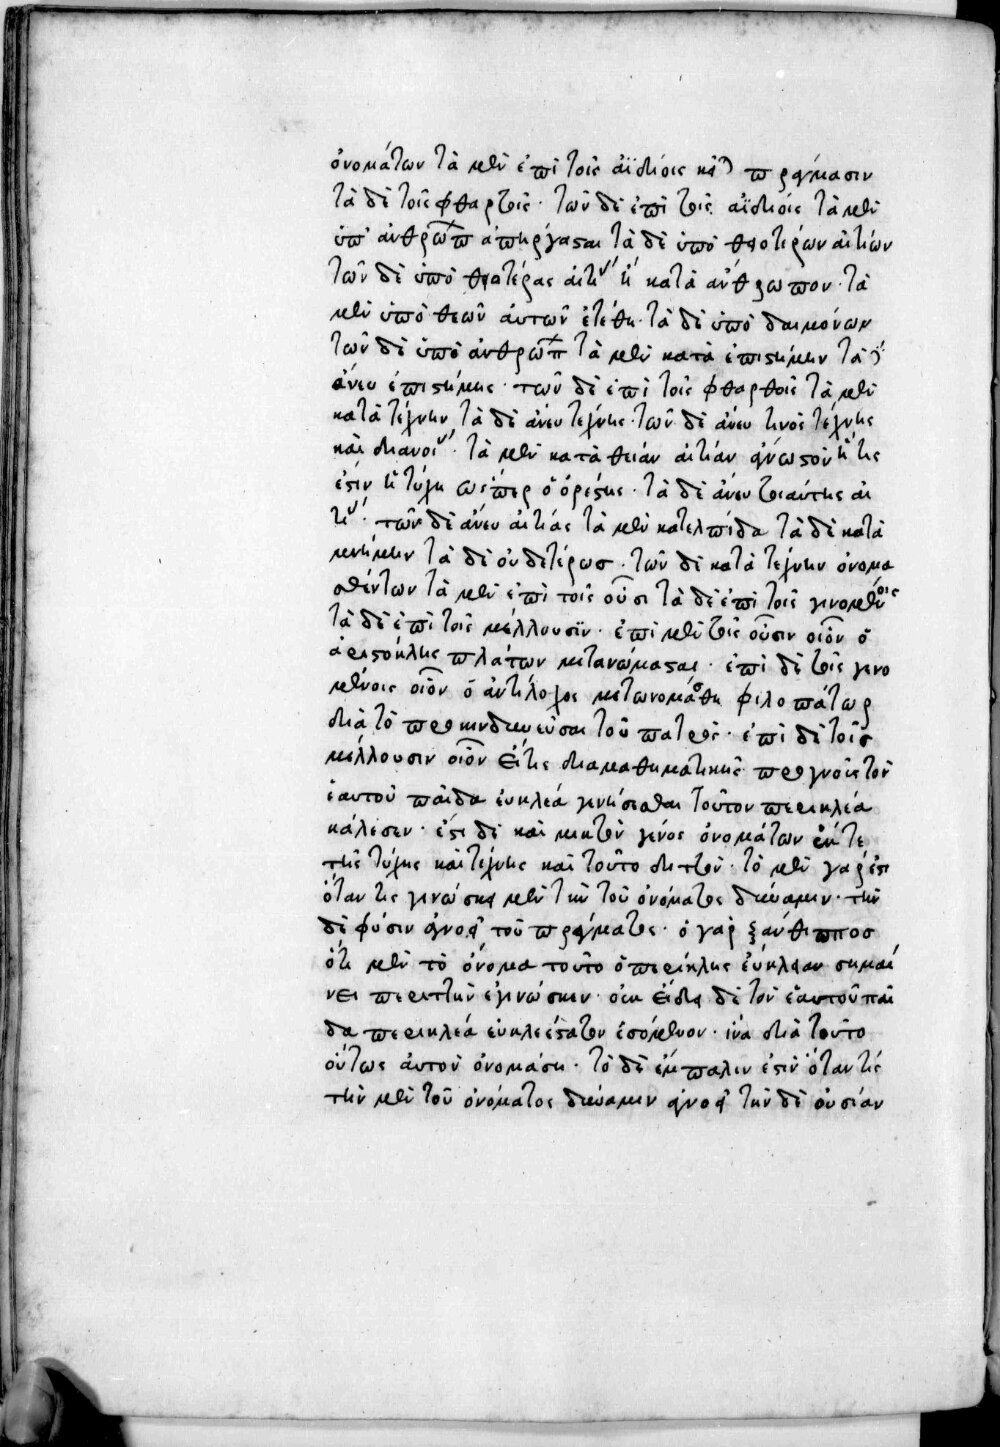 ὀνομάτων τὰ μὲν ἐπὶ τοῖς ἀϊδίοις κεῖται πράγμασιν
τὰ δὲ τοῖς φθαρτοῖς· τῶν δὲ ἐπὶ τοῖς ἀϊδίοις τὰ μὲν
ὑπ' ἀνθρώπ ἀπηργασται τὰ δὲ ὑπὸ θειοτέρων αἰτιῶν
τῶν δὲ ὑπὸ θειοτέρας αἰτίας ἢ κατὰ ἄνθρωπον· τὰ
μὲν ὑπὸ θεῶν αὐτῶν ἐτέθη· τὰ δὲ ὑπὸ δαιμόνων
τῶν δὲ ὑπὸ ἀνθρώπ τὰ μὲν κατὰ ἐπιστήμην τὰ δὲ
ἄνευ ἐπιστήμης· τῶν δὲ ἐπὶ τοῖς φθαρθοῖς τὰ μὲν
κατὰ τέχνην τὰ δὲ ἄνευ τέχνης· τῶν δὲ ἄνευ τινὸς τέχνης
καὶ διανοίας· τὰ μὲν κατὰ θείαν αἰτίαν ἄγνωστον ἥτις
ἐστὶν ἡ τύχη ὥσπερ ὁ ὀρέστης· τὰ δὲ ἄνευ τοιαύτης αἰ
τίας· τῶν δὲ ἄνευ αἰτίας τὰ μὲν κατελπίδα τὰ δὲ κατὰ
μνήμην τὰ δὲ οὐδετέρως· τῶν δὲ κατὰ τέχνην ὀνομα
σθέντων τὰ μὲν ἐπὶ τοῖς οὖσι τὰ δὲ ἐπὶ τοῖς γινομένοις
τὰ δὲ ἐπὶ τοῖς μέλλουσιν· ἐπὶ μὲν τοῖς οὖσιν οἷον ὁ
ἀριστοκλῆς πλάτων μετανώμασται· ἐπὶ δὲ τοῖς γινο
μένοις οἷον ὁ ἀντίλοχος μετωνομάσθη φιλοπάτωρ
διὰ τὸ προκινδυνεῦσαι τοῦ πατρός· ἐπὶ δὲ τοῖς
μέλλουσιν οἷον εἴ τις διαμαθηματικῆς προγνοὺς τὸν
ἑαυτοῦ παῖδα εὐκλεᾶ γενήσεσθαι τοῦτον περικλέα
κάλεσεν· ἔστι δὲ καὶ μικτὸν γένος ὀνομάτων ἔκ τε
τῆς τύχης καὶ τέχνης καὶ τοῦτο διττόν· τὸ μὲν γάρ ἐστι
ὅταν τις γινώσκῃ μὲν τὴν τοῦ ὀνόματος δύναμιν· τὴν
δὲ φύσιν ἀγνοῇ τοῦ πράγματος· ὁ γὰρ ξανθιππος
ὅτι μὲν τὸ ὄνομα τοῦτο ὁ περικλῆς εὔκλειαν σημαί
νει περιττὴν ἐγίνωσκεν· οὐκ εἴδει δὲ τὸν ἑαυτοῦ παῖ
δα περικλέα εὐκλεέστατον ἐσόμενον· ἵνα διὰ τοῦτο
οὕτως αὐτὸν ὀνομάσῃ· τὸ δὲ ἔμπαλιν ἐστὶν ὅταν τίς
τὴν μὲν τοῦ ὀνόματος δύναμιν ἀγνοῇ τὴν δὲ οὐσίαν